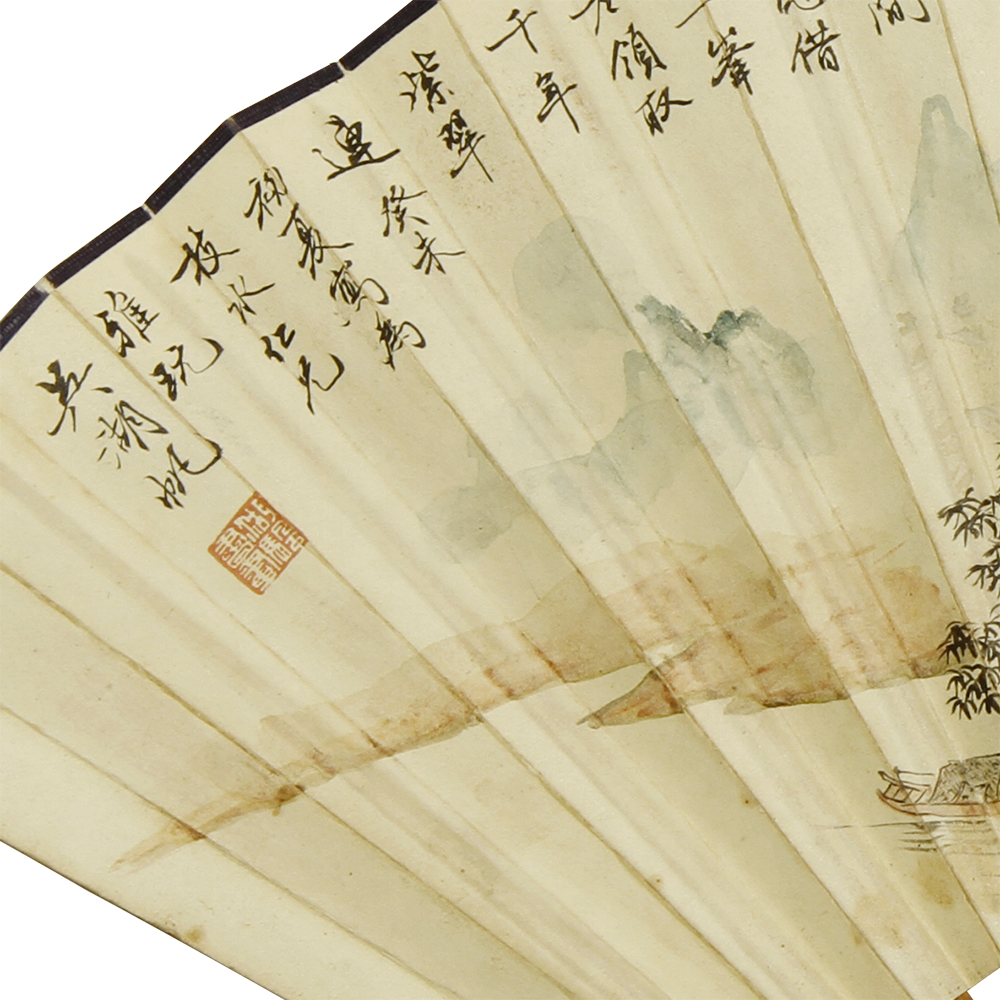 閒
借
峯
領取
千年
紫翠
連癸未
初夏寫為
枝水仁兄
雅玩
吳湖帆